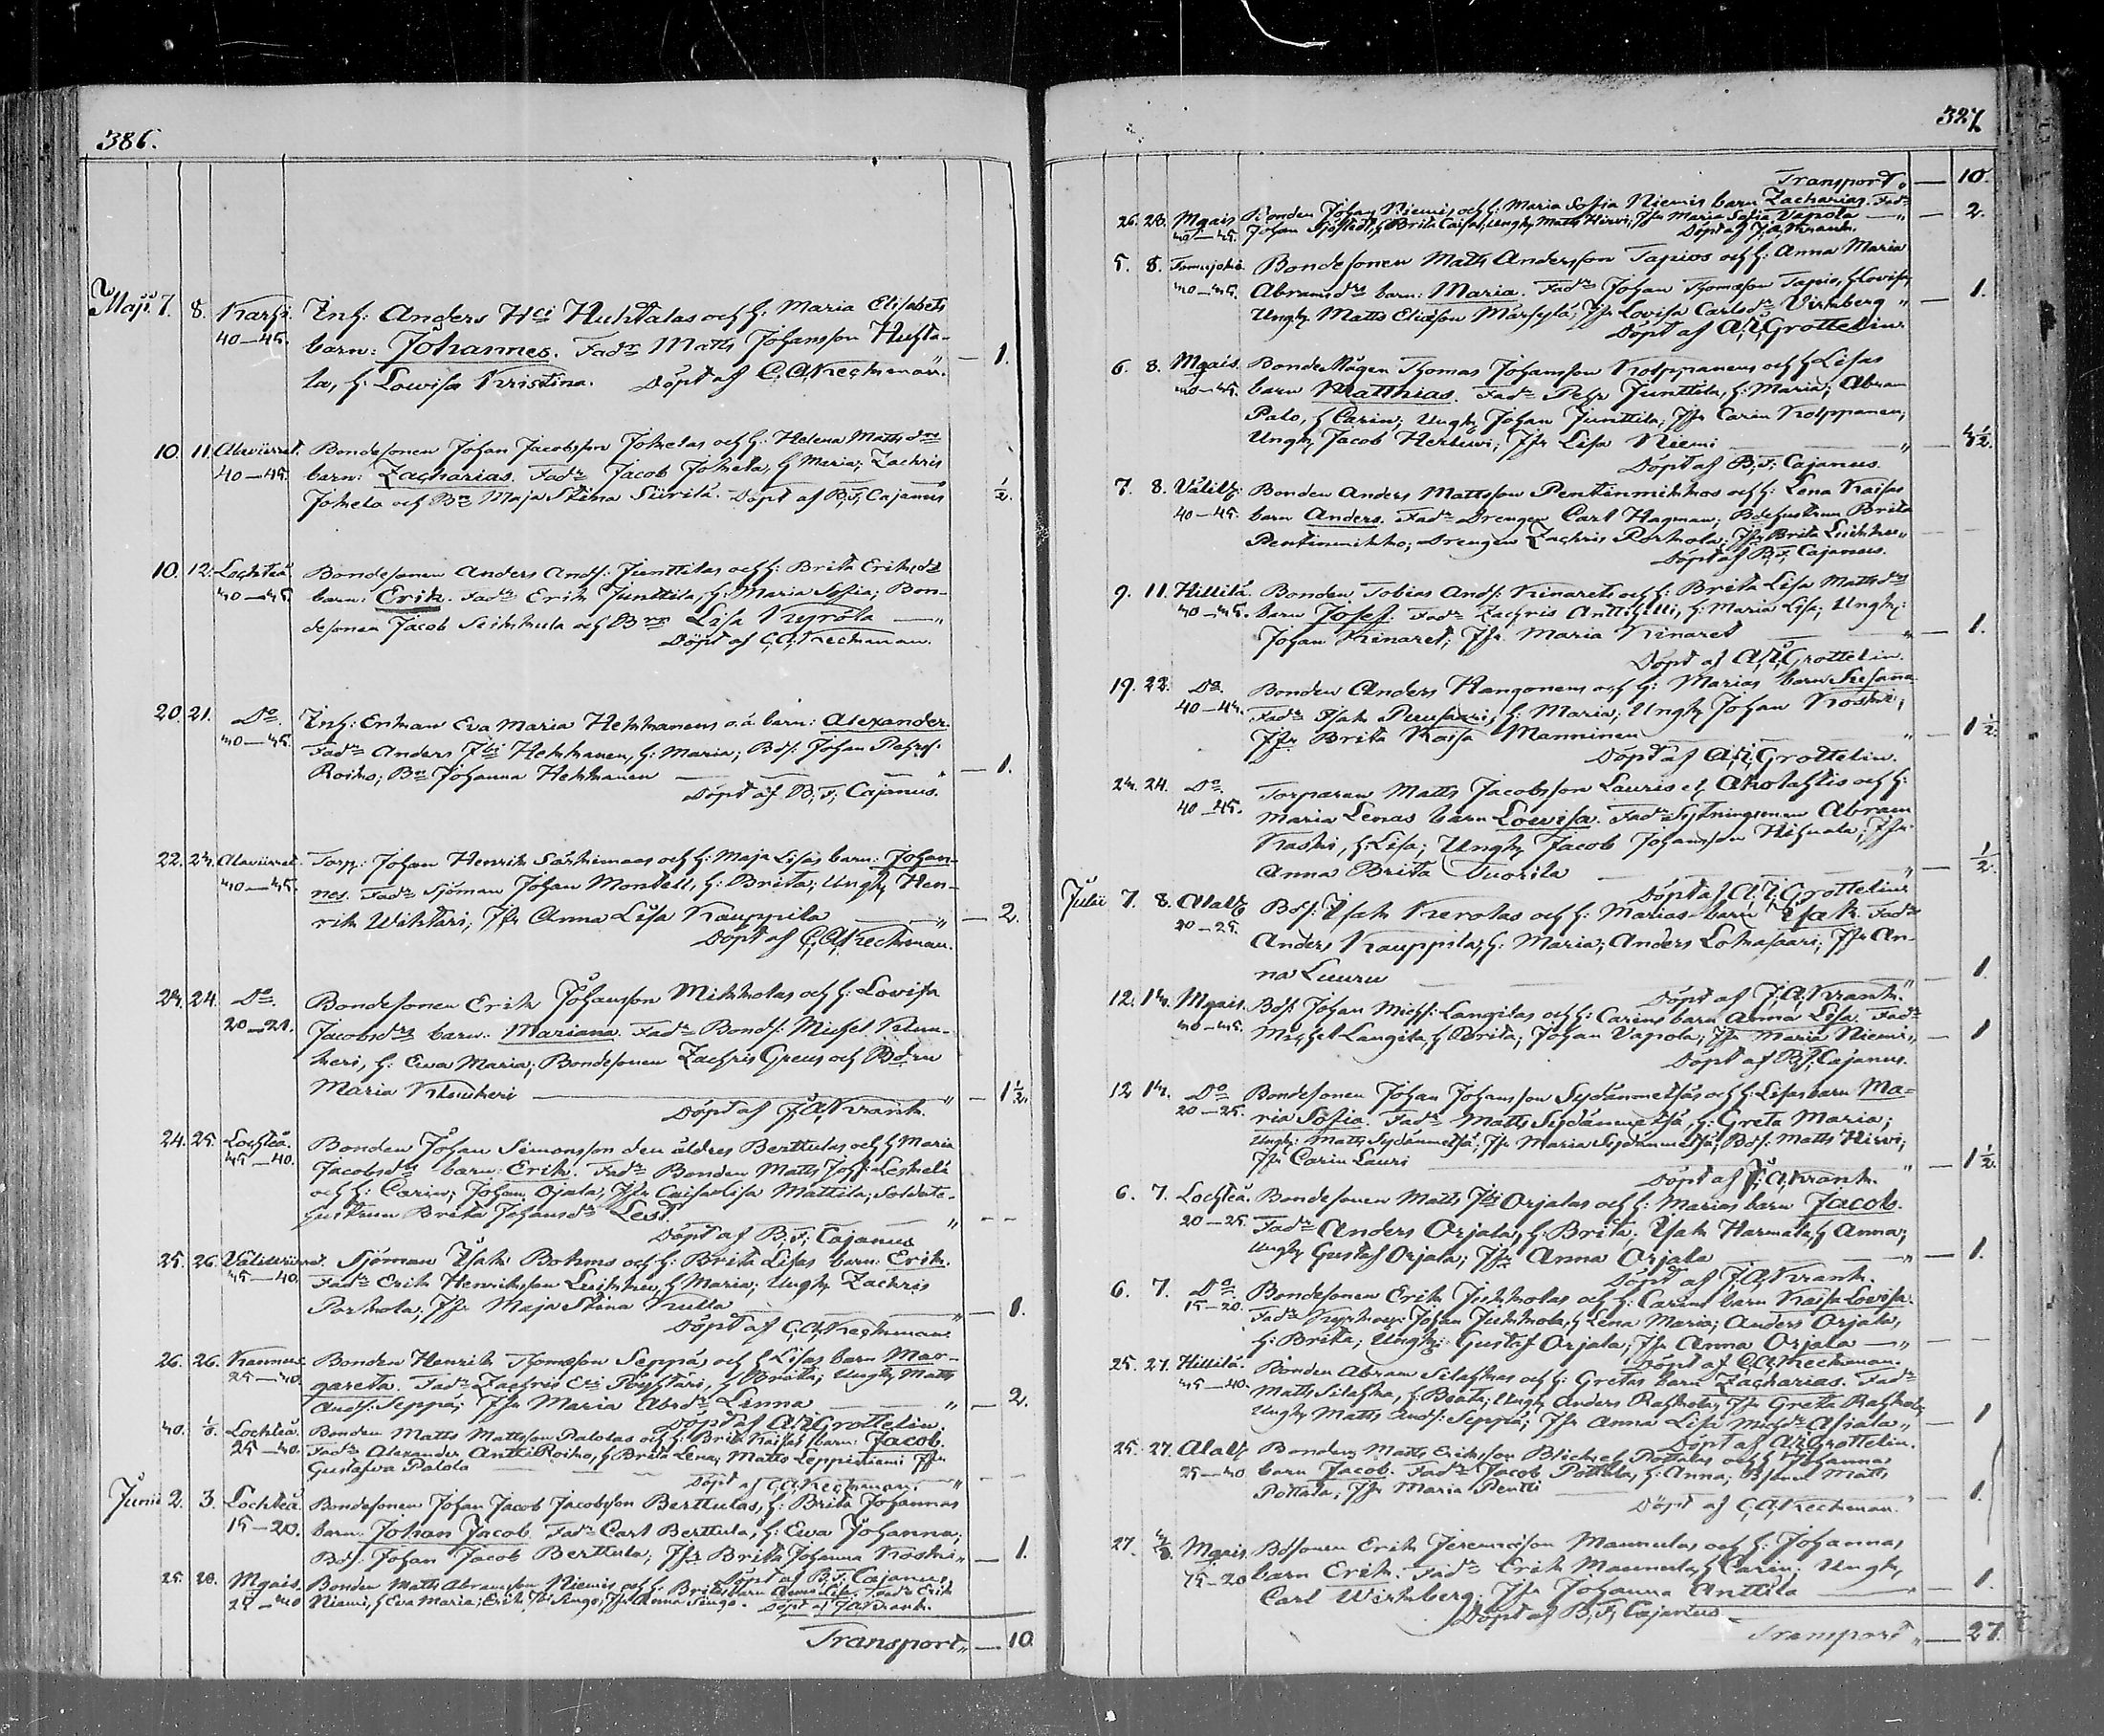 386.
Maji 7. 8. Karhi. Inh: Anders Hci Huhtalas och h: Maria Elisabets
40—45. barn: Johannes. Fadr Matts Johansson Huhta-
la, h: Lowisa Kristina. Döpt af C. A. Keckman. " — 1.
10. 11. Alaviirret. Bondesonen Johan Jacobsson Jokelas och h: Helena Mattsdrs
40—45. barn: Zacharias. Fadr Jacob Jokela, h Maria; Zachris
Jokela och Bn Maja Stina Siirilä. Döpt af B. F. Cajanus " ½.
10. 12. Lochteå. Bondesonen Anders Ands: Junttilas och h: Brita Eriksdrs
40—45. barn: Erik. Fadr Erik Junttila, h: Maria Sofia; Bon-
desonen Jacob Seikkula och Bn Lisa Kyrölä — "
Döpt af C. A. Keckman.
20. 21. Do. Inh: Enkan Eva Maria Hekkanens o.ä. barn: Alexander.
40—45. Fadr Anders Hekkanen, h: Maria; Bds: Johan Pehrs:
Roiko; Bn Johanna Hekkanen — " — 1.
Döpt af B. F. Cajanus.
22. 24. Alaviirret. Torp: Johan Henrik Särkimaas och h: Maja Lisas barn: Johan-
40—45. nes. Fadr Sjöman Johan Montell, h: Brita; Ungk Hen-
rik Wihtari; Jfr Anna Lisa Kauppila — " — 2.
Döpt af C. A. Keckman.
24. 24. Do. Bondesonen Erik Johansson Mikkolas och h: Lovisa
20—25. Jacobsdrs barn: Mariana. Fadr Bonds: Michel Klem-
heri, h: Ewa Maria; Bondesonen Zachris Greus och Bdrn
Maria — " — 1½.
Döpt af J. A. Krank.
24. 25. Lochteå. Bonden Johan Simonsson den äldres Berttulas och h Maria
35—40. Jacobsdrs barn: Erik. Fadr Bonden Matts Johs: Leskelä
och h: Carin; Johan Ojala, Jfr Caisa Lisa Mattila; Soldats-
hustrun Brita Johansdr Lest. " — —
Döpt af B. F. Cajanus
25. 26. Väliviirret. Sjöman Isak Bohms och h: Brita Lisas barn: Erik.
35—40. Fadr Erik Henriksson Leikkeu, h Maria; Ungk Zachris
Porkola; Jfr Maja Stina Kulla — " — 1.
Döpt af C. A. Keckman.
26. 26. Kannus. Bonden Henrik Thomasson Seppäs och h Lisas barn Mar-
25—30. gareta. Fadr Zachris Pöyhtäri, h Brita; Ungk Matts
Ands: Seppä; Jfr Maria Absdr Linna " — 2.
Döpt af A. A. Grottelin.
30. Lochteå. Bonden Matts Mattsson Palolas och h: Brita Kaisas barn: Jacob.
25—30. Fadr Alexander Antti Roiko, h Brita Lena, Matts Leppiniemi Jfr
Gustafva Palola — "
Döpt af C. A. Keckman.
Junii 2. 3. Lochteå Bondesonen Johan Jacob Jacobsson Berttulas, h: Brita Johannas
15—20. barn: Johan Jacob. Fadr Carl Berttula, h: Ewa Johanna;
Bds: Johan Jacob Berttula; Jfr Brita Johanna Koski " — 1.
Döpt af B. F. Cajanus
25. 28. Mgais. Bonden Matts Abramsson Niemis och h: Britas barn Anna Lisa. Fadr Erik
25—30 Niemi, h Eva Maria; Erik Singo; Jfr Anna Singo. Döpt af J. A. Krank.
Transport " — 10.
327.
Transport " — 10.
26. 28. Mgais. Bonden Johan Niemis och h: Maria Sofia Niemis barn Zacharias. Fadr
40—45. Johan Sjöstedt, h Brita Caisa; Ungk Matts Hirvi; Jfr Maria Sofia Vapola — " — 2.
Döpt af J. A. Krank.
5. 8. Tomujoki. Bondesonen Matts Andersson Tapios och h: Anna Maria
40—45. Abramsdrs barn: Maria. Fadr Johan Thomason Tapio, h Lovisa,
Ungk Matts Eliasson Marsylä; Jfr Lovisa Carlsdr Wirkberg " — 1.
Döpt af A. A. Grottelin.
6. 8. Mgais. Bonde Mågen Thomas Johansson Kolppanens och h Lisas
40—45. barn Matthias. Fadr Pehr Junttila, h: Maria; Abram
Palo, h Carin; Ungk Johan Junttila; Jfr Carin Kolppanen;
Ungk Jacob Herkuvi; Jfr Lisa Niemi — " —
Döpt af B. F. Cajanus.
7. 8. Välik: Bonden Anders Mattsson Pentinmikkos och h: Lena Kaisas
40—45. barn Anders. Fadr Drengen Carl Hagman; Bdehustrun Brita
Pentinmikko; Drengen Zachris Porkola; Jfr Brita Leikkeu "
Döpt af B. F. Cajanus.
9. 11. Hillilä. Bonden Tobias Ands: Kinarets och h: Brita Lisa Mattsdrs
40—45. barn Josef. Fadr Zachris Anttihilli, h: Maria Lisa; Ungk:
Johan Kinaret; Jfr Maria Kinaret " — 1.
Döpt af A. A. Grottelin.
19. 22. Do. Bonden Anders Hangonens och h: Marias barn Susana.
40—45. Fadr Isak Peuusaari, h: Maria; Ungk Johan Koski;
Jfr Brita Kaisa Manninen " — 1½.
Döpt af A. A. Grottelin.
24. 24. Do. Torparen Matts Jacobsson Lauris el. Akolahtis och h:
40—45. Maria Lenas barn Lowisa. Fadr Sytningsman Abram
Koski, h: Lisa; Ungk Jacob Johansson Hihnala; Jfr
Anna Brita Vuorila " — ½.
Döpt af A. A. Grottelin.
Julii 7. 8. Alak Bds: Isak Kerolas och h: Marias barn Isak. Fadr
20—25. Anders Kauppila, h: Maria; Anders Lohasaari; Jfr An-
na Luuru — " — 1.
Döpt af J. A. Krank.
12. 14. Mgais. Bds. Johan Michs: Langilas och h: Carins barn Anna Lisa. Fadr
40—45. Michel Langila, h Brita; Johan Vapola; Jfr Maria Niemi " — 1
Döpt af B. F. Cajanus.
12 14. Do Bondesonen Johan Johansson Sydänmetsäs och h: Lisas barn Ma-
20—25. ria Sofia. Fadr Matts Sydänmetsä, h: Greta Maria;
Ungk: Matts Sydänmetsä; Jfr Maria Sydänmetsä; Bds. Matts Hirvi;
Jfr Carin Lauri " — 1½.
Döpt af J. A. Krank.
6. 7. Lochteå. Bondesonen Matts Orjalas och h: Marias barn Jacob.
20—25. Fadr Anders Orjala, h Brita; Isak Harmala, h Anna;
Ungk Gustaf Orjala; Jfr Anna Orjala — " — 1.
Döpt af J. A. Krank.
6. 7. Do Bondesonen Erik Juhkolas och h: Carins barn Kaisa Lovisa.
15—20. Fadr Kyrkov: Johan Juhkola, h Lena Maria; Anders Orjala,
h: Brita; Ungk: Gustaf Orjala; Jfr Anna Orjala — " — —
Döpt af C. A. Keckman.
25. 27. Hillilä. Bonden Abram Silahkas och h: Gretas barn Zacharias. Fadr
35—40. Matts Silahka, h: Beata; Ungk Anders Rahkola; Jfr Greta Rahkola,
Ungk Matts Ands: Seppä; Jfr Anna Lisa Michsdr Asiala " — 1
Döpt af A. A. Grottelin.
25. 27. Alak Bonden Matts Eriksson Pottalas och h: Johannas
25—30 barn Jacob. Fadr Jacob Pottala, h: Anna; Matts
Pottala; Jfr Maria Pentti — " — 1.
Döpt af C. A. Keckman.
27. Mgais. Bdsonen Erik Jeremiasson Maunulas och h: Johannas
15—20 barn Erik. Fadr Erik Maunula, h Carin; Ungk
Carl Wirkberg. Jfr Johanna Anttila — " — 1.
Döpt af B. F. Cajanus
Transport " — 27.